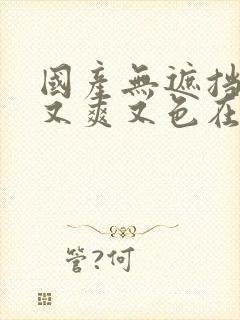 國產無遮挡
又爽又色在
管?何